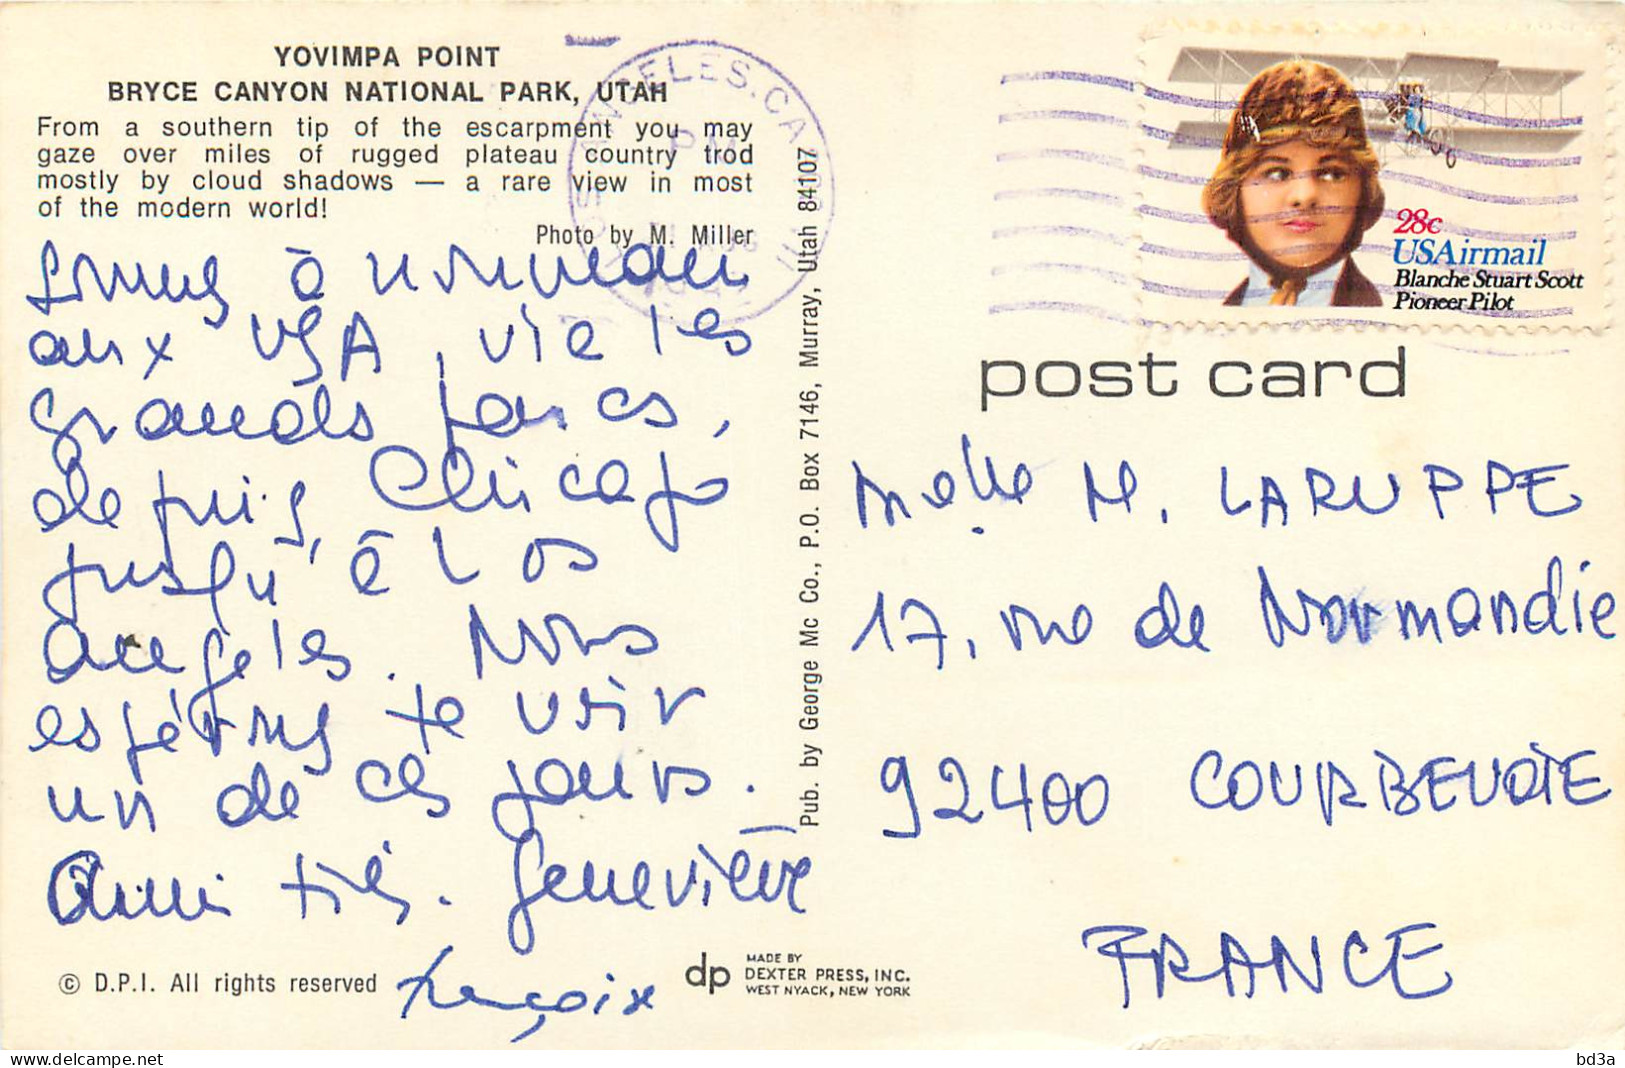 YOVIMPA POINT
BRYCE CANYON NATIONAL PARK, UTAH
From a southern tip of the escarpment you may
gaze over miles of rugged plateau country trod
mostly by cloud shadows — a rare view in most
of the modern world!
Photo by M. Miller
sommes à nouveau
aux USA, via les
grands parcs,
depuis, Chicago
jusqu'à Los
angeles. Nous
espérons te voir
un de ces jours.
Amitiés. Geneviève
© D.P.I. All rights reserved
Pub. by George Mc Co., P.O. Box 7146, Murray, Utah 84107
dp MADE BY
DEXTER PRESS, INC.
WEST NYACK, NEW YORK
LOS ANGELES, CA
PM
28c
USAirmail
Blanche Stuart Scott
Pioneer Pilot
post card
Melle M. LARUPPE
17, rue de Normandie
92400 COURBEVOIE
FRANCE
bd3a
www.delcampe.net